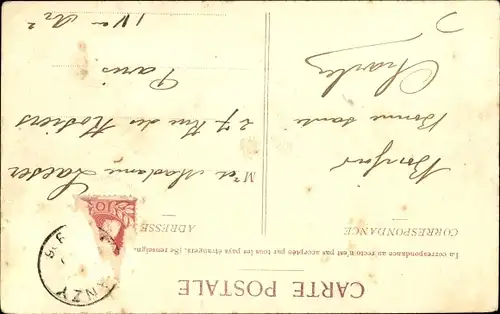 CARTE POSTALE
La correspondance au recto n'est pas acceptée par tous les pays étrangers. (Se renseigner
CORRESPONDANCE
Bonjour
Bonne santé
Charles
ADRESSE
M et Madame
27 Rue des Rosiers
Paris
IV Arr
10
NZY